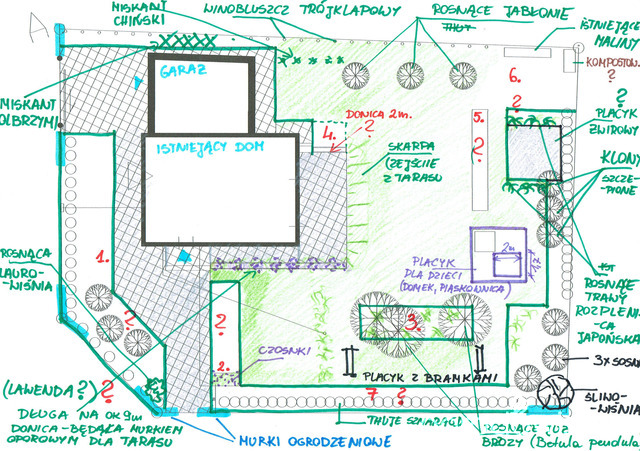 MISKANT
CHIŃSKI
WINOBLUSZCZ TRÓJKLAPOWY
ROSNĄCE JABŁONIE
ISTNIEJĄCE
MALINY
KOMPOSTOW.
?
A
GARAŻ
MISKANT
OLBRZYMI
DONICA 2m.
?
4.
6.
?
5.
?
?
PLACYK
ŻWIROWY
ISTNIEJĄCY DOM
SKARPA
(ZEJŚCIE
Z TARASU
KLONY
SZCZE-
PIONE
1.
ROSNĄCA
LAURO-
WIŚNIA
PLACYK
DLA DZIECI
(DOMEK, PIASKOWNICA)
2m
1,7
ROSNĄCE
TRAWY
ROZPLENI-
CA
JAPOŃSKA
?
?
3.
?
2.
CZOSNKI
3x SOSNA
(LAWENDA?)
?
PLACYK Z BRAMKAMI
7 ?
ŚLIWO-
WIŚNIA
DŁUGA NA OK 9m
DONICA - BĘDĄCA MURKIEM
OPOROWYM DLA TARASU
MURKI OGRODZENIOWE
THUJE SZMARAGD
ROSNĄCE JUŻ
BRZOZY (Betula pendula)